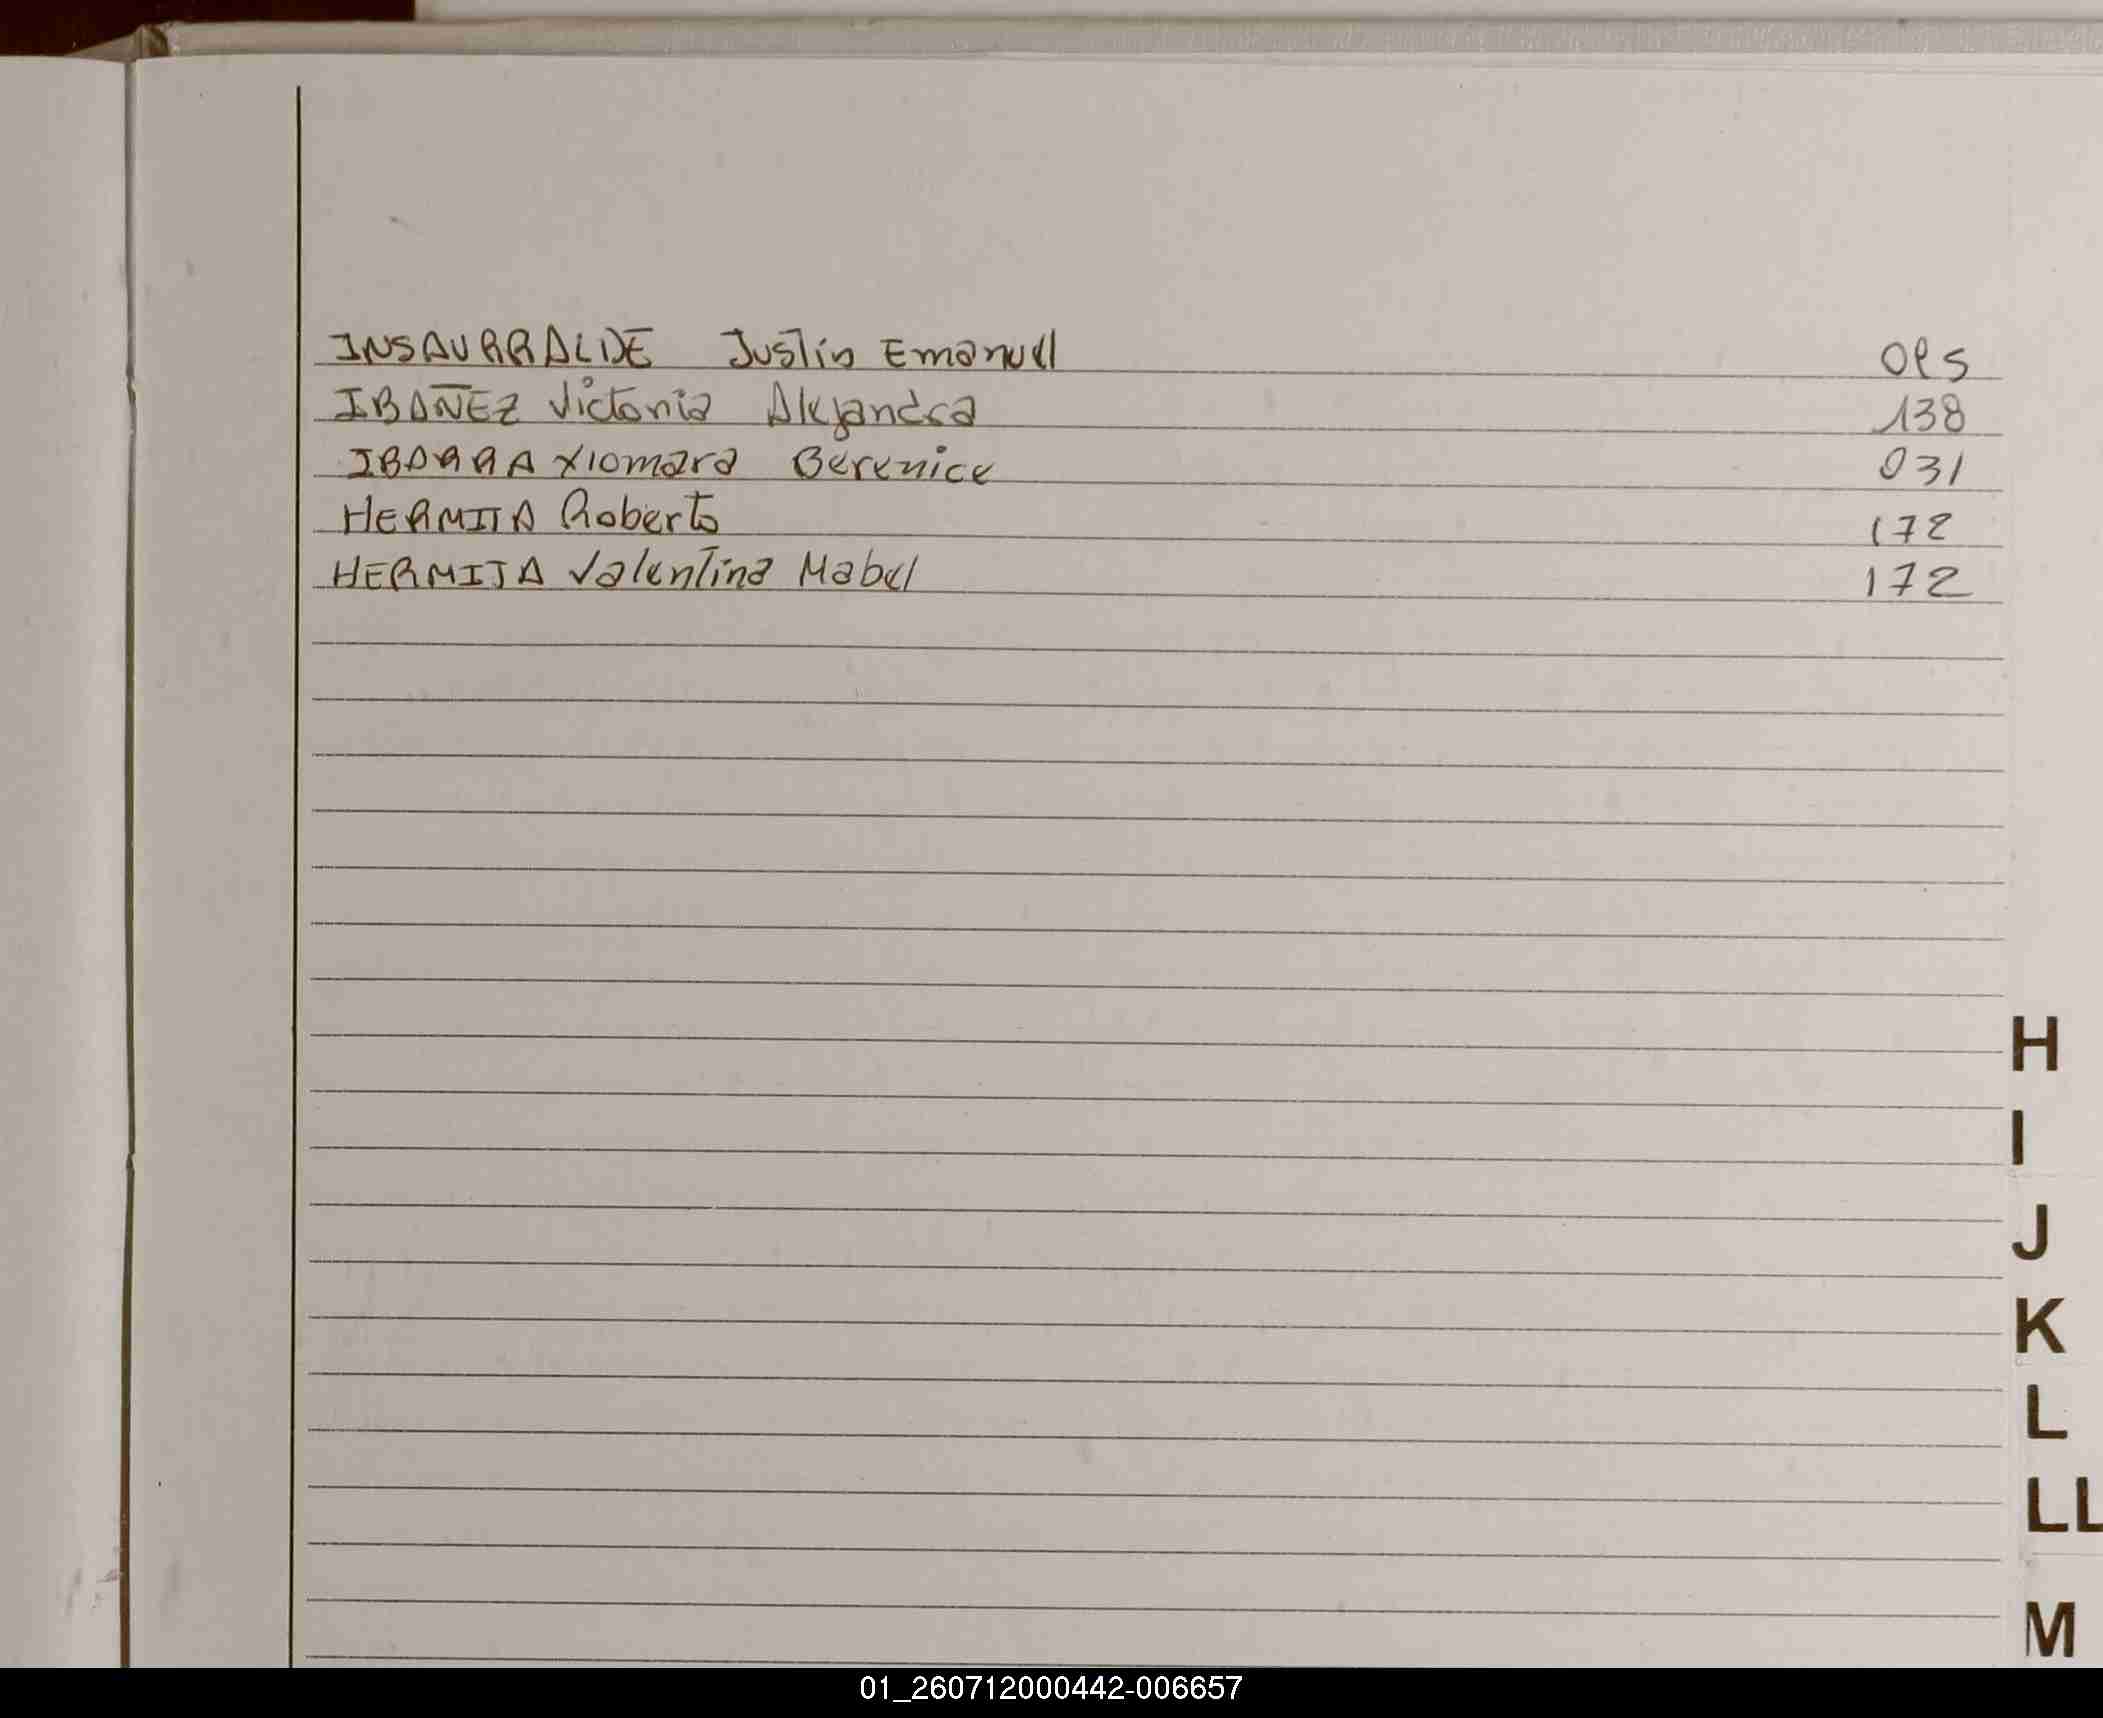 INSAURRALDE Justin Emanuel
IBAÑEZ Victoria Alejandra 138
IBARRA Xiomara Berenice 031
HERMIJA Roberto 172
HERMIJA Valentina Mabel 172
H
I
J
K
L
LL
M
01_260712000442-006657